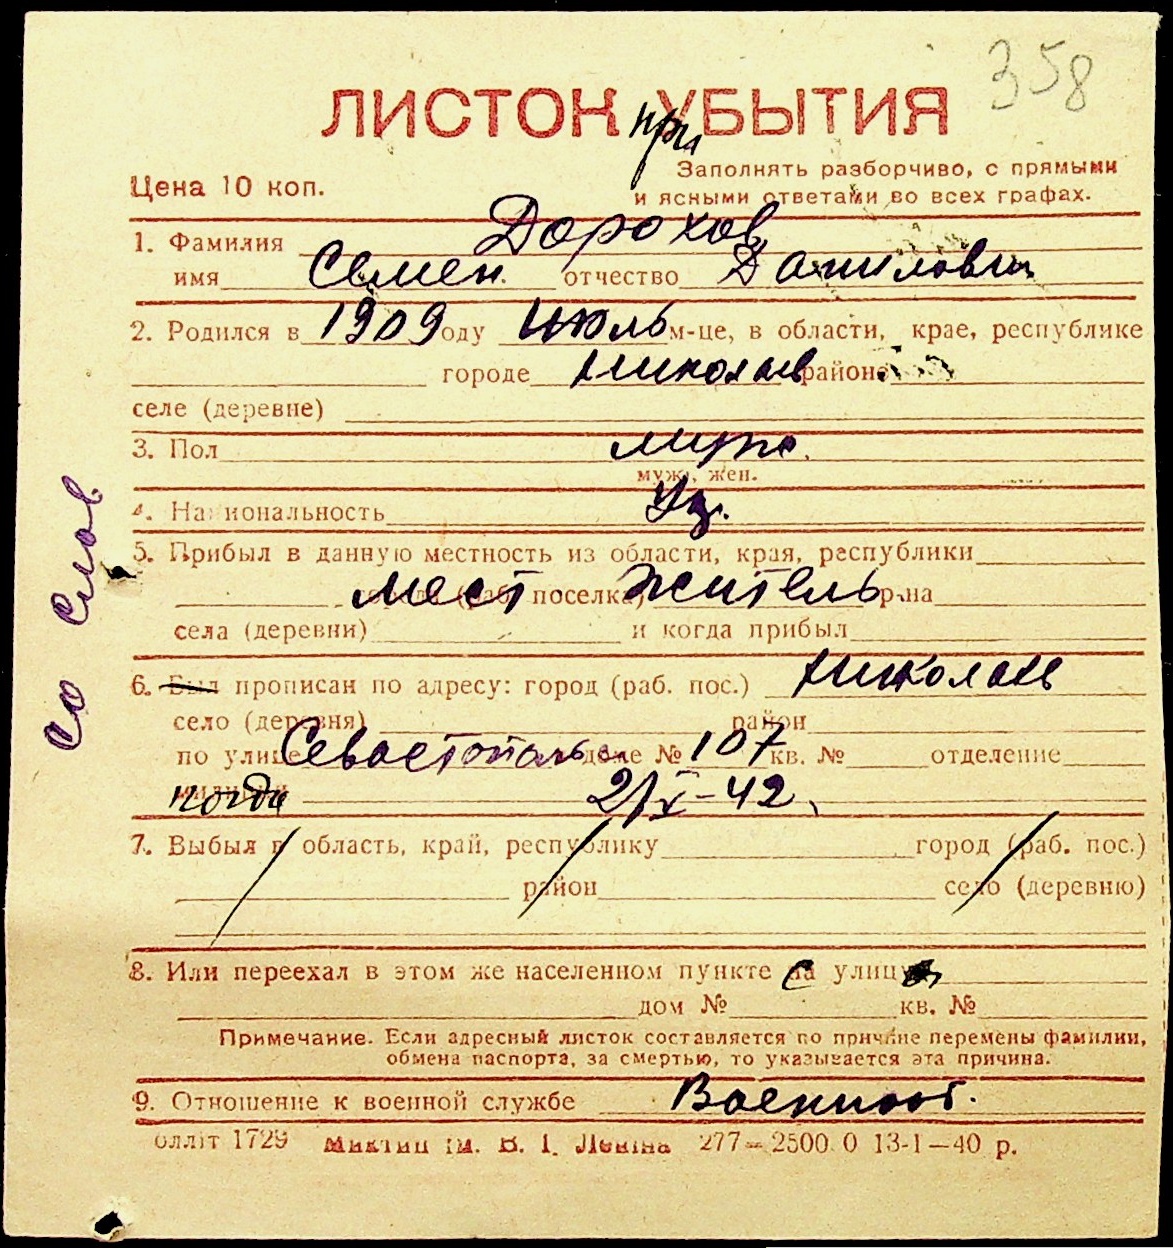 358
ЛИСТОК УБЫТИЯ
при
Заполнять разборчиво, с прямыми
Цена 10 коп.
и ясными ответами во всех графах.
1. Фамилия Дорохов
имя Семен отчество Данилович
2. Родился в 1909 году июль м-це, в области, крае, республике
городе Николаев районе
селе (деревне)
3. Пол муж.
муж., жен.
4. Национальность
5. Прибыл в данную местность из области, края, республики
мест житель
города (раб. поселка) р-на
села (деревни) и когда прибыл
со слов
6. Был прописан по адресу: город (раб. пос.) Николаев
село (деревня) район
по улице Севастопольс доме № 107 кв. № отделение
когда 2/X-42
7. Выбыл в область, край, республику город (раб. пос.)
район село (деревню)
8. Или переехал в этом же населенном пункте на улицу
дом № кв. №
Примечание. Если адресный листок составляется по причине перемены фамилии,
обмена паспорта, за смертью, то указывается эта причина.
9. Отношение к военной службе Военнооб.
Обліт 1729 ім. В. І. Леніна 277–2500.0 13-I–40 р.